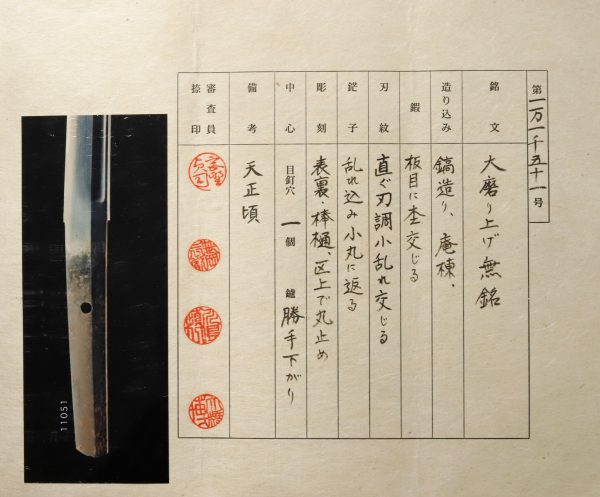 第一万一千五十一号
銘文 大磨り上げ無銘
造り込み 鎬造り、庵棟、
鍜 板目に杢交じる
刃紋 直ぐ刃調小乱れ交じる
鋩子 乱れ込み小丸に返る
彫刻 表裏・棒樋、区上で丸止め
中心 目釘穴 一個 鑢 勝手下がり
備考 天正頃
審査員捺印
11051